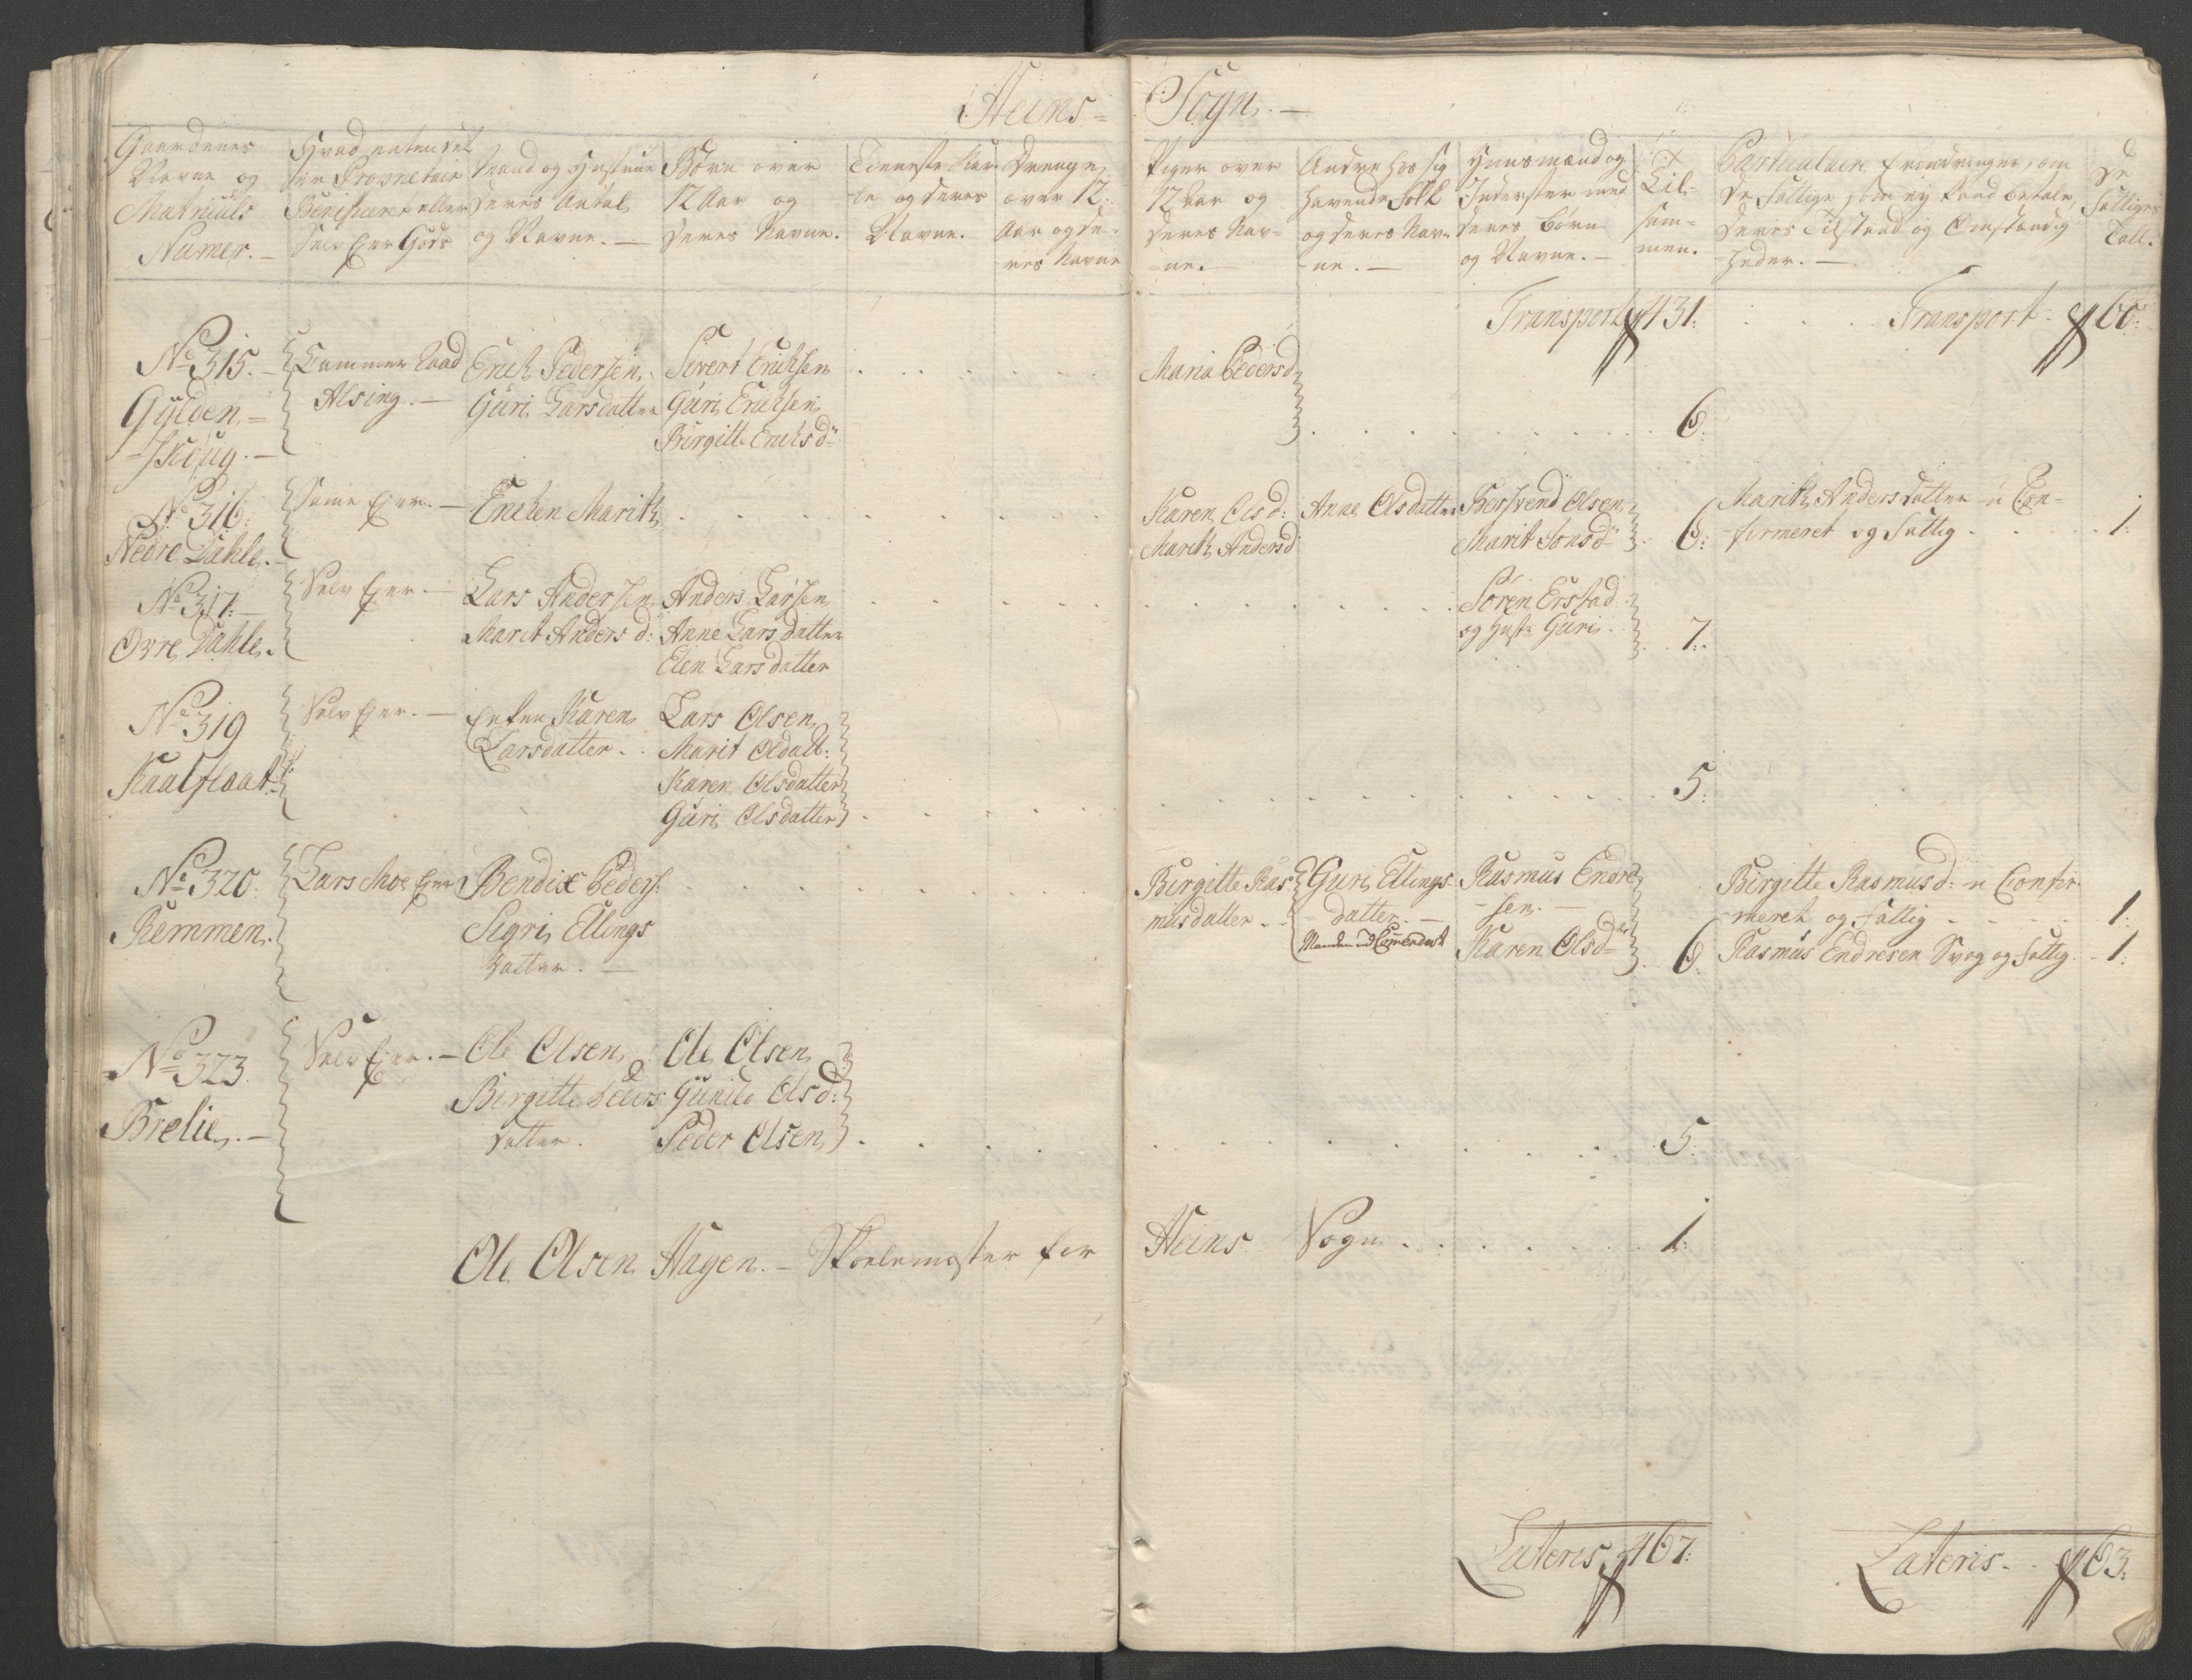 Heins = Sogn. —
Gaardenes
Navne og
Matriculs
Numer. —
Hvad enten det
Proprietair
Beneficeret eller
Selv Ejer Gods
Mand og Hustrue
deres Antal
og Navne. —
Børn over
12 Aar og
deres Navne.
Tieneste Kar-
le og deres
Navne.
Drenge
over 12:
Aar og de-
res Navne
Piger over
12 Aar og
deres Nav-
-ne.
Andre hos sig
havende Folk
og deres Nav-
-ne. —
Huusmænd og
Inderster med
deres børn
og Navne. —
Til-
sam-
men.
Particulaire Erindringer, om
de fattige som ej kand betale,
deres Tilstand og Omstændig-
heder. —
De
Fattiges
Tall.
Transport 431:
Transport 60:
No 315. —
Gylden =
-skoug. —
Cammer Raad
Alsing. —
Erich Pedersen
Guri Larsdatter
Sivert Erichsen
Guri Erichsen
Birgitte Erichsd
Maria Pedersd
6:
No 316:
Nedre Dahle. —
Same Ejer. —
Enchen Marith
Karen Olsd:
Marith Andersd
Anne Olsdatter
Bersvend Olsen
Marit Jonsd
6:
Marith Andersdatter u Con-
firmeret og fattig 1:
No 317: —
Øvre Dahle.
Selv Ejer. —
Lars Andersen
Marit Andersd:
Anders Larsen
Anne Larsdatter
Elen Larsdatter
Søren Erstad
og Hust: Guri
7:
No 319
Kaalfloat
Selv Ejer. —
Enken Karen
Larsdatter.
Lars Olsen
Marit Olsdatt:
Karen Olsdatter
Guri Olsdatter
5:
No 320:
Remmen.
Lars Moe Ejer
Bendix Peders:
Sigri Ellings
datter. —
Birgitte Ras-
musdatter
Guri Ellings-
datter. —
Rasmus Endre
-sen. —
Karen Olsd
6:
Birgitte Rasmusd: u Confir
-meret og fattig 1:
Rasmus Endresen Svag og fattig 1:
No 323.
Brelie. —
Selv Ejer. —
Ole Olsen
Birgitte Peders
datter.
Ole Olsen
Gunild Olsd:
Peder Olsen
5:
Ole Olsen Hagen. — Skolemester for Heins Sogn 1:
Lateris 467:
Lateris 63: